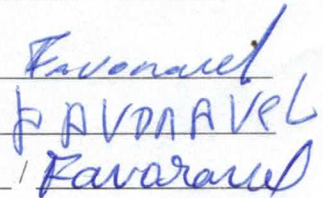 Favoravel
FAVORAVEL
/ Favoravel